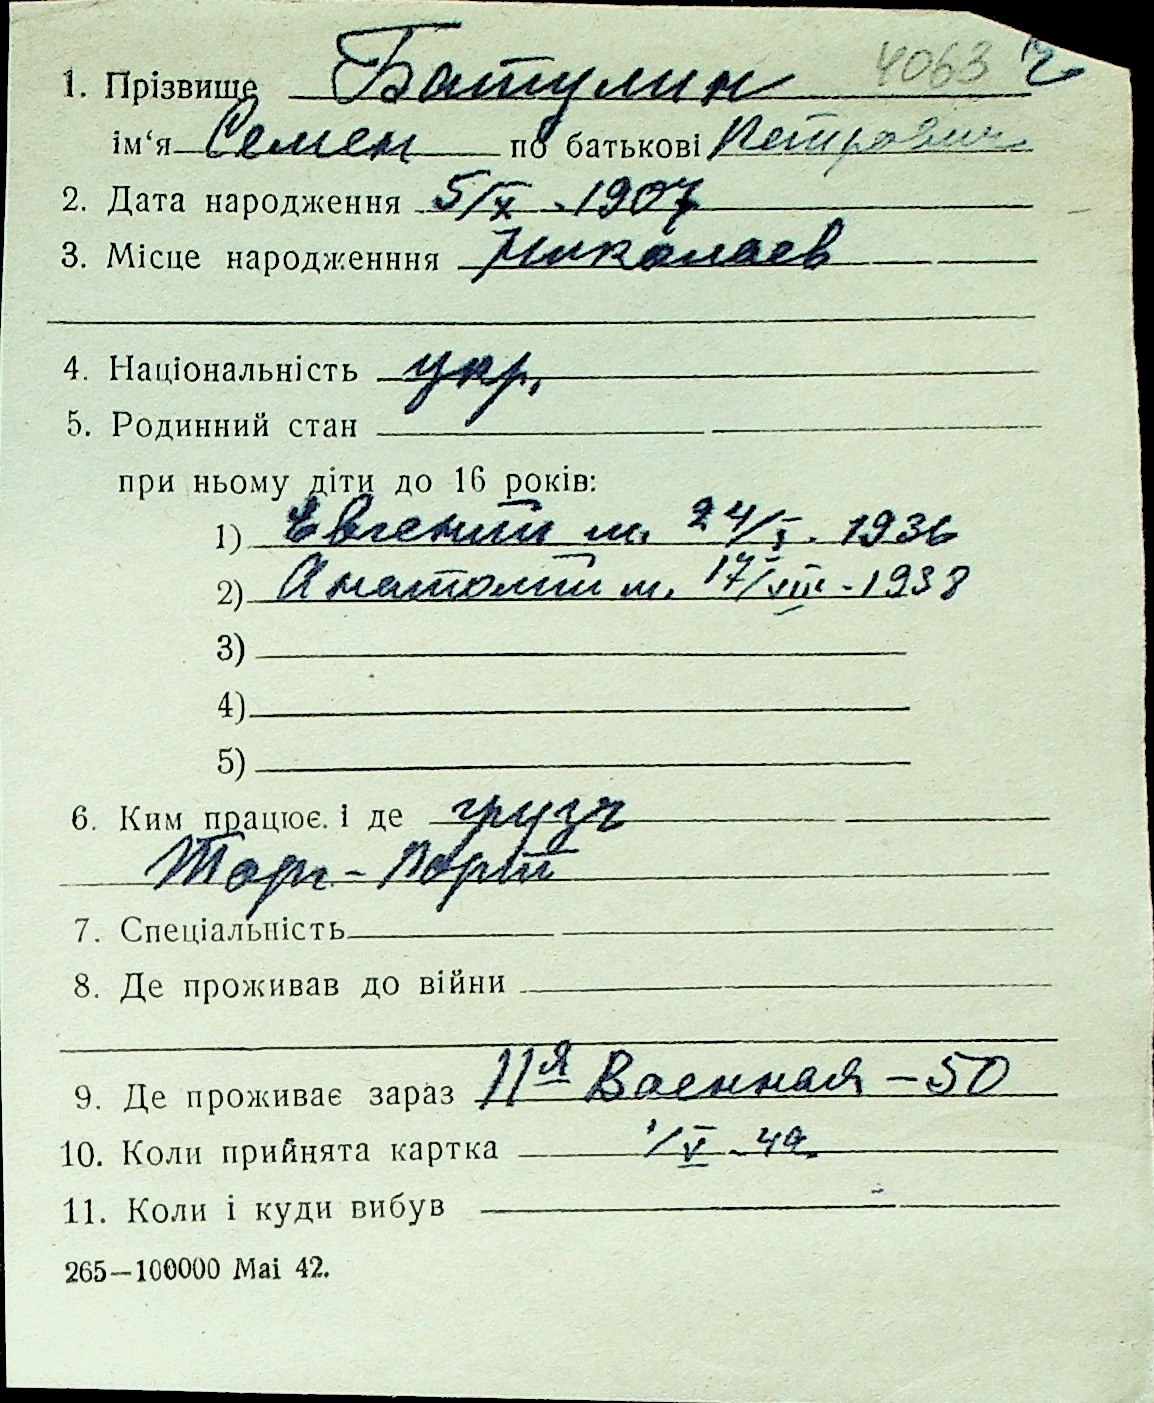 1. Прізвище Батулин 4063 Ч
ім‘я Семен по батькові Петрович
2. Дата народження 5/X - 1907
3. Місце народженння Николаев
4. Національність укр.
5. Родинний стан
при ньому діти до 16 років:
1) Евгений м. 24/I. 1936
2) Анатолий м. 17/VIII - 1938
3)
4)
5)
6. Ким працює. і де грузч
Торг.-Порт
7. Спеціальність
8. Де проживав до війни
9. Де проживає зараз 11я Военная - 50
10. Коли прийнята картка 1/V - 42.
11. Коли і куди вибув
265—100000 Mai 42.